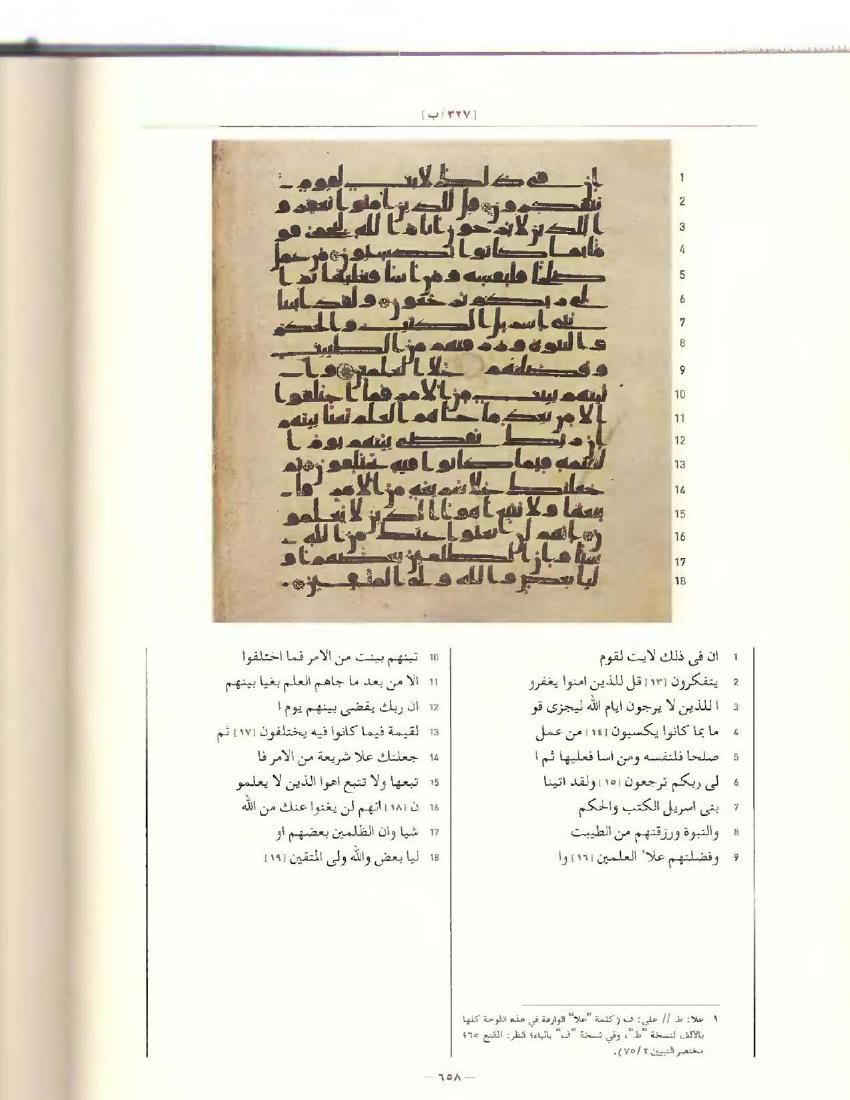 [٣٢٧/ب]
1
2
3
4
5
6
7
8
9
10
11
12
13
14
15
16
17
18
1 ان فى ذلك لايت لقوم
2 يتفكرون [١٣] قل للذين امنوا يغفرو
3 ا للذين لا يرجون ايام الله ليجزى قو
4 ما بما كانوا يكسبون [١٤] من عمل
5 صلحا فلنفسه ومن اسا فعليها ثم ا
6 لى ربكم ترجعون [١٥] ولقد اتينا
7 بنى اسريل الكتب والحكم
8 والنبوة ورزقنهم من الطيبت
9 وفضلنهم علا١ العلمين [١٦] وا
10 تينهم بينت من الامر فما اختلفوا
11 الا من بعد ما جاهم العلم بغيا بينهم
12 ان ربك يقضى بينهم يوم ا
13 لقيمة فيما كانوا فيه يختلفون [١٧] ثم
14 جعلنك علا شريعة من الامر فا
15 تبعها ولا تتبع اهوا الذين لا يعلمو
16 ن [١٨] انهم لن يغنوا عنك من الله
17 شيا وان الظلمين بعضهم او
18 ليا بعض والله ولى المتقين [١٩]
١ علا: ط // على: ف (كلمة "علا" الواردة في هذه اللوحة كلها
بالألف لنسخة "ط"، وفي نسخة "ف" بالياء؛ انظر: المقنع ٦٥؛
مختصر التبيين ٧٥/٢).
— ٦٥٨ —